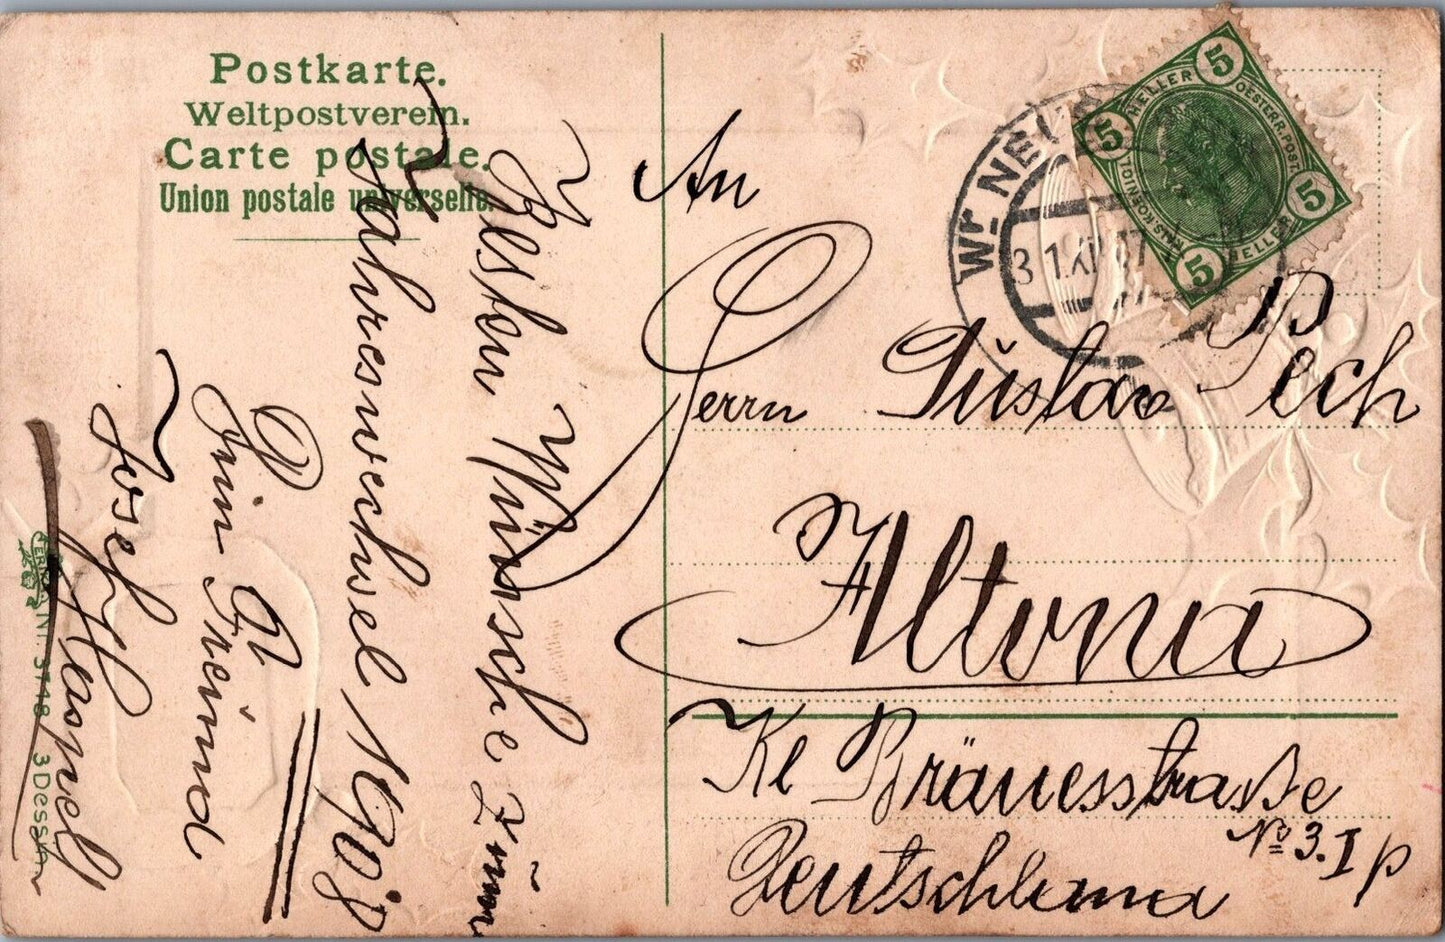 Postkarte.
Weltpostverein.
Carte postale.
Union postale universelle.
Besten Wünsche zum
Jahreswechsel 1908
Dein Freund
Josef Haspel
An
Herrn Gustav Pech
Altona
Kl Bräuesstraße
№ 3. I p
Deutschland
Wr. NEU
31 XII 07
5 5 5 5
HELLER
OESTERR. POST.
HELLER
KAISERKOENIGL
Nr. 3748 3 Dessin